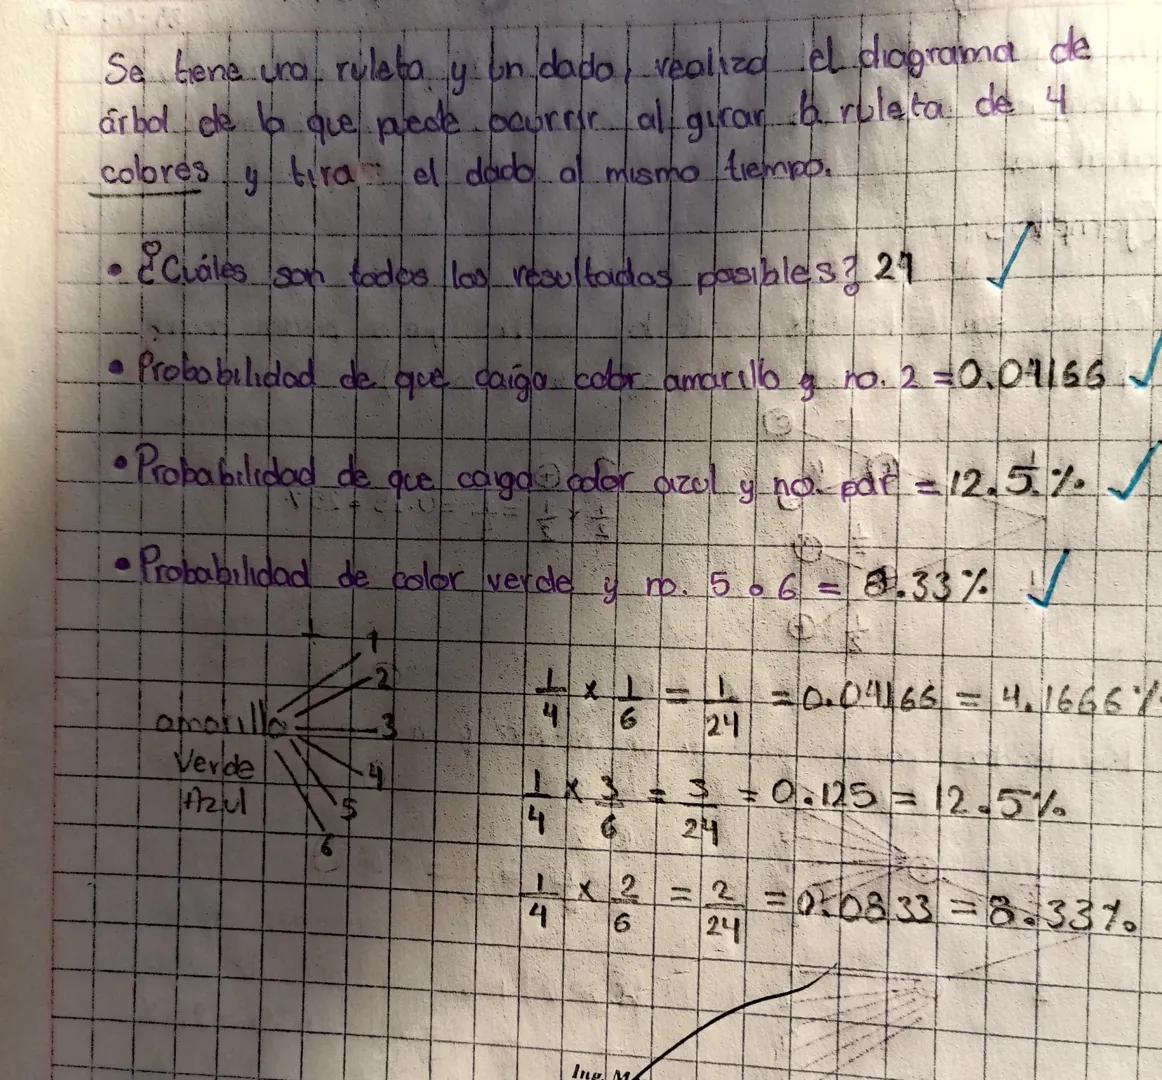 Se tiene una ruleta y un dado, realiza el diagrama de
árbol de lo que puede ocurrir al girar la ruleta de 4
colores y tira el dado al mismo tiempo.
• ¿Cuáles son todos los resultados posibles? 24
• Probabilidad de que caiga color amarillo y no. 2 = 0.04166
• Probabilidad de que caiga color azul y no. par = 12.5%
• Probabilidad de color verde y no. 5 o 6 = 8.33%
1
2
amarillo 3
Verde 4
Azul 5
6
1/4 x 1/6 = 1/24 = 0.04166 = 4.1666%
1/4 x 3/6 = 3/24 = 0.125 = 12.5%
1/4 x 2/6 = 2/24 = 0.0833 = 8.33%
Ing. M